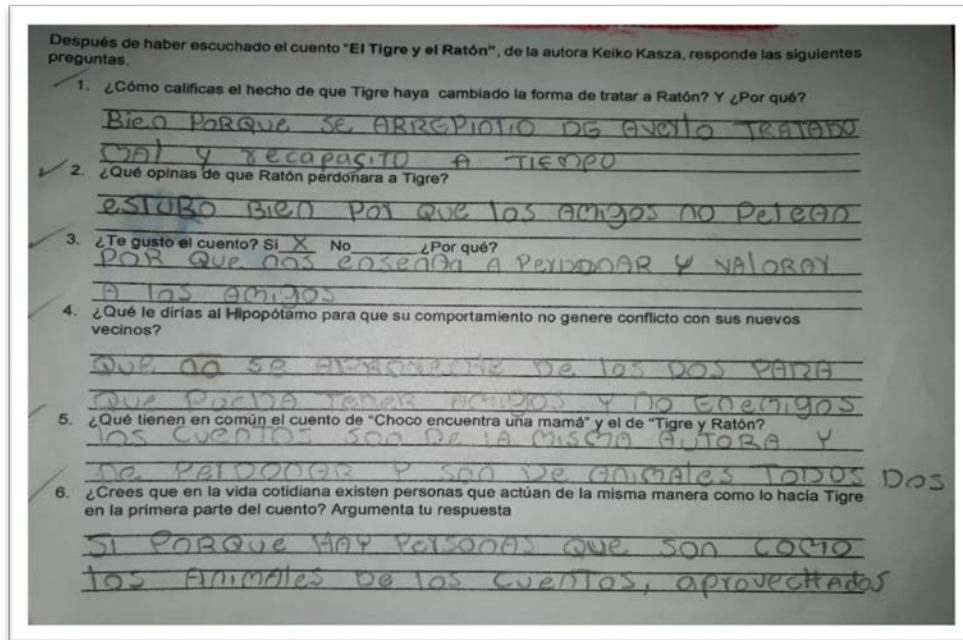 Después de haber escuchado el cuento "El Tigre y el Ratón", de la autora Keiko Kasza, responde las siguientes
preguntas.
1. ¿Cómo calificas el hecho de que Tigre haya cambiado la forma de tratar a Ratón? Y ¿Por qué?
Bien PORQUE SE ARREPINTIO DE AVERLO TRATADO
MAl Y recapasiTO A TIEMPO
2. ¿Qué opinas de que Ratón perdonara a Tigre?
eSTUBO Bien Por que los AMigos no Pelean
3. ¿Te gustó el cuento? Si X No ¿Por qué?
POR Que nos enseñan A PerdonAR Y VAlorar
A los AMigos
4. ¿Qué le dirías al Hipopótamo para que su comportamiento no genere conflicto con sus nuevos
vecinos?
QUE no se APROVECHE De los DOS PARA
QUE PUEDA TENER AMigos Y no Enemigos
5. ¿Qué tienen en común el cuento de "Choco encuentra una mamá" y el de "Tigre y Ratón?
los CUENTOS SON De lA MISMA AUTORA Y
De PerDONAR Y son De AniMAles TODOS DOS
6. ¿Crees que en la vida cotidiana existen personas que actúan de la misma manera como lo hacía Tigre
en la primera parte del cuento? Argumenta tu respuesta
SI PORQUE HAY Personas QUE son COMO
los AnimAles De los CUENTOS, aprovecHAdos